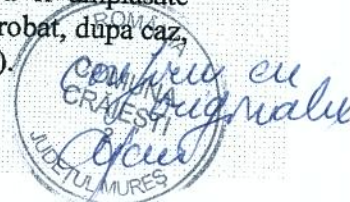 amplusate
robat, dupa caz,
).
ROMÂNIA
COMUNA
CRĂIEȘTI
2
JUDEȚUL MUREȘ
Conform cu
originalul